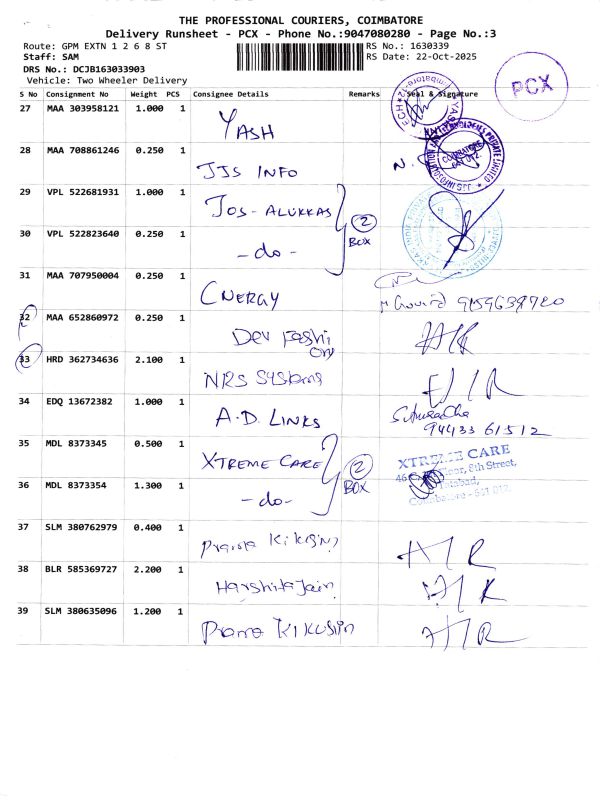 THE PROFESSIONAL COURIERS, COIMBATORE
Delivery Runsheet - PCX - Phone No.:9047080280 - Page No.:3
Route: GPM EXTN 1 2 6 8 ST
RS No.: 1630339
Staff: SAM
RS Date: 22-Oct-2025
DRS No.: DCJB163033903
Vehicle: Two Wheeler Delivery
PCX
S No Consignment No Weight PCS Consignee Details Remarks Seal & Signature
27 MAA 303958121 1.000 1 YASH
28 MAA 708861246 0.250 1 JJS INFO
29 VPL 522681931 1.000 1 JOS-ALUKKAS
2 BOX
30 VPL 522823640 0.250 1 -do-
31 MAA 707950004 0.250 1 CNERGY 9159639920
32 MAA 652860972 0.250 1 Dev Fashion
33 HRD 362734636 2.100 1 NRS Systems
34 EDQ 13672382 1.000 1 A.D. LINKS
94433 61512
35 MDL 8373345 0.500 1 XTREME CARE
2 BOX
XTREME CARE
Floor, 8th Street,
Coimbatore - 641 012.
36 MDL 8373354 1.300 1 -do-
37 SLM 380762979 0.400 1
38 BLR 585369727 2.200 1 Harshita Jain
39 SLM 380635096 1.200 1